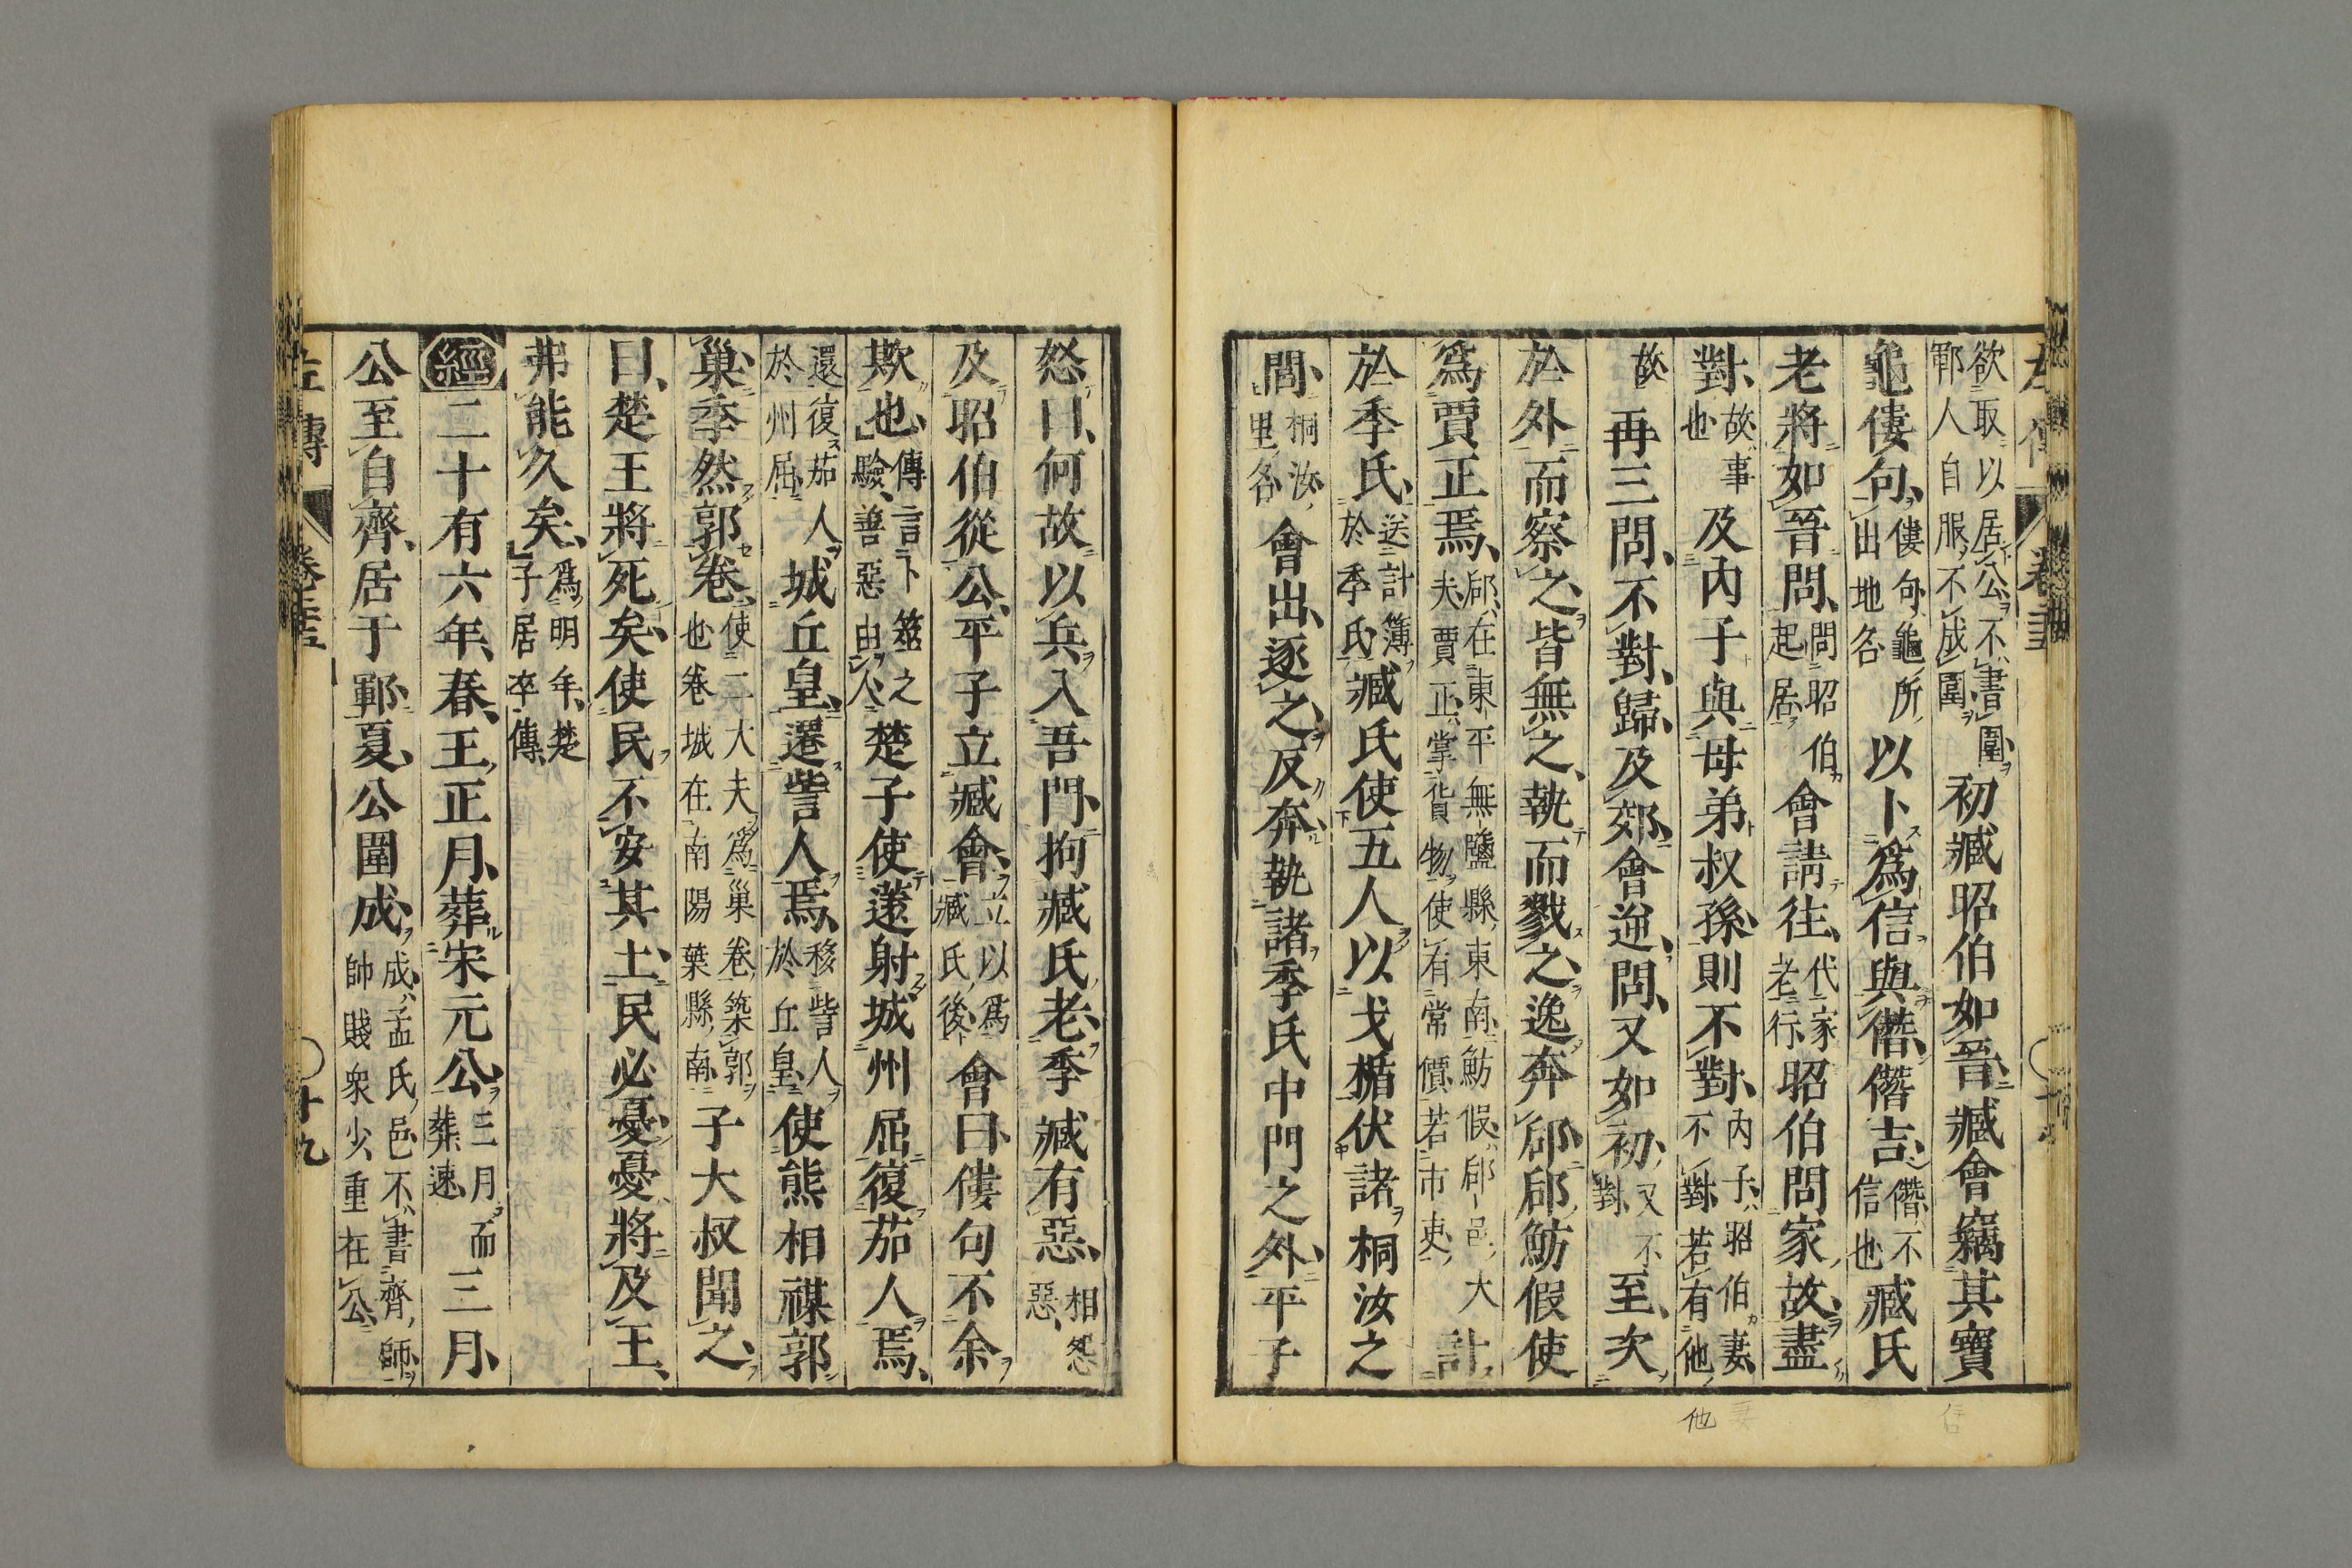 欲取以居公不書圍
鄆人自服不成圍
初臧昭伯如晉臧會竊其寶
龜僂句
僂句龜所
出地名
以卜爲信與僭僭吉
僭不
信也
臧氏
老將如晉問
問昭伯
起居
會請往
代家
老行
昭伯問家故盡
對
故事
也
及內子與母弟叔孫則不對
內子昭伯妻
不對若有他
故
再三問不對歸及郊會逆問又如初
又不
對
至次
於外而察之皆無之執而戮之逸奔郈郈魴假使
爲賈正焉
郈在東平無鹽縣東南魴假郈邑大
夫賈正掌貨物使有常價若市吏
計
於季氏
送計簿
於季氏
臧氏使五人以戈楯伏諸桐汝之
閭
桐汝
里名
會出逐之反奔執諸季氏中門之外平子
怒曰何故以兵入吾門拘臧氏老季臧有惡
相怨
惡
及昭伯從公平子立臧會
立以爲
臧氏後
會曰僂句不余
欺也
傳言卜筮之
驗善惡由人
楚子使薳射城州屈復茄人焉
還復茄人
於州屈
城丘皇遷訾人焉
移訾人
於丘皇
使熊相禖郭
巢季然郭卷
使二大夫爲巢卷築郭
也卷城在南陽葉縣南
子大叔聞之
曰楚王將死矣使民不安其土民必憂憂將及王
弗能久矣
爲明年楚
子居卒傳
經
二十有六年春王正月葬宋元公
三月而
葬速
三月
公至自齊居于鄆夏公圍成
成孟氏邑不書齊師
帥賤衆少重在公
左傳
十九
他